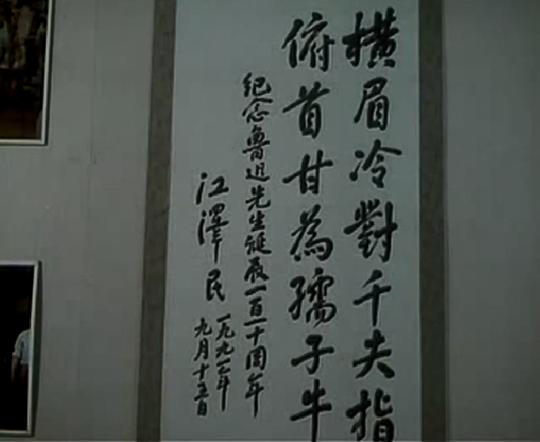 橫眉冷對千夫指
俯首甘為孺子牛
紀念魯迅先生誕辰一百一十周年
江澤民
一九九一年
九月十五日